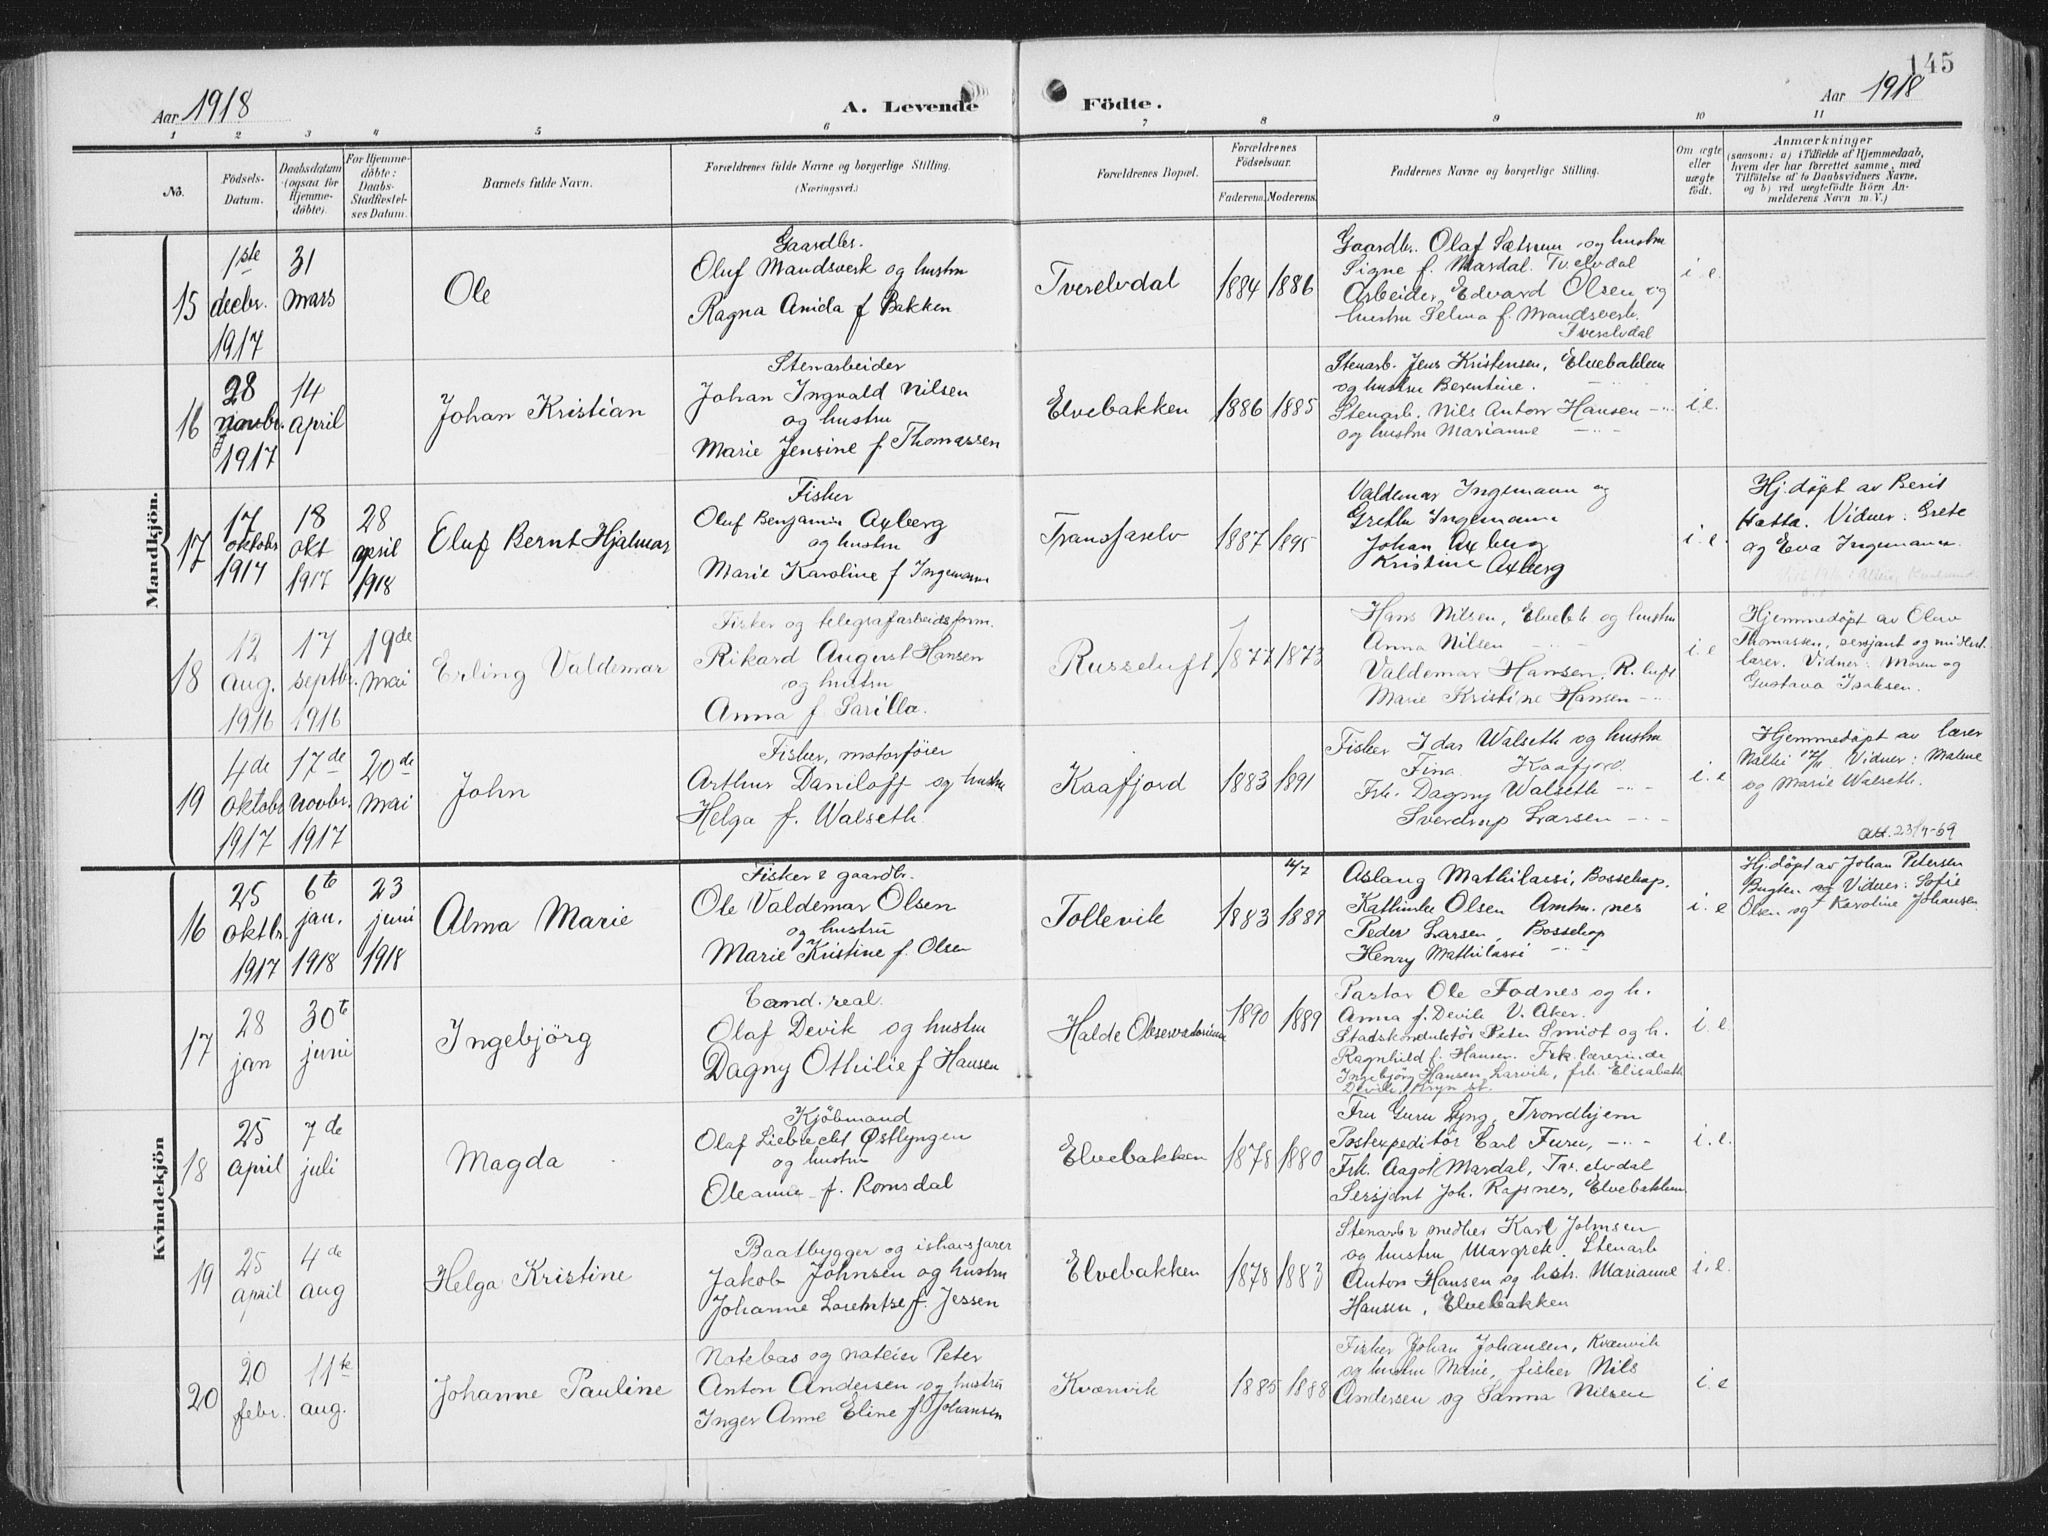 145
Aar 1918
A. Levende Födte.
Aar 1918
1 2 3 4 5 6 7 8 9 10 11
No.
Födsels-Datum.
Daabsdatum (ogsaa for Hjemme-döbte).
For Hjemme-döbte: Daabs-Stadfæstel-ses Datum.
Barnets fulde Navn.
Forældrenes fulde Navne og borgerlige Stilling.
(Næringsvei.)
Forældrenes Bopæl.
Forældrenes Födselsaar.
Faderens. Moderens.
Faddernes Navne og borgerlige Stilling.
Om ægte eller uægte födt.
Anmærkninger
(saasom: a) i Tilfælde af Hjemmedaab,
hvem der har forrettet samme, med
Tilföielse af to Daabsvidners Navne,
og b) ved uægtefödte Börn An-
melderens Navn m. V.)
Mandkjön.
15
1ste decbr. 1917
31 mars
Ole
Gaardbr.
Oluf Mandsverk og hustru
Ragna Amida f Bakken
Tverelvdal
1884 1886
Gaardb. Olaf Sætrum og hustru
Signe f. Mardal. Tv.elvdal
Arbeider Edvard Olsen og
hustru Selma f. Mandsverk.
Tverelvdal
i. e.
16
28 novbr. 1917
14 april
Johan Kristian
Stenarbeider
Johan Ingvald Nilsen
og hustru
Marie Jensine f Thomassen
Elvebakken
1886 1885
Stenarb. Jens Kristensen, Elvebakken
og hustru Berentine. -"-
Stenarb. Nils Anton Hansen -"-
og hustru Marianne -"-
i. e.
17
17 oktobr 1917
18 okt 1917
28 april 1918
Eluf Bernt Hjalmar
Fisker
Oluf Benjamin Axberg
og hustru
Marie Karoline f Ingemann
Transfarelv
1887 1895
Valdemar Ingemann og
Grethe Ingemann
Johan Axberg
Kristine Axberg
i. e.
Hj.døpt av Berit
Hætta. Vidner: Grete
og Eva Ingemann.
18
12 aug. 1916
17 septbr. 1916
19de mai
Erling Valdemar
Fisker og telegrafarbeidsform.
Rikard August Hansen
og hustru
Anna f Sarilla.
Russeluft
1877 1873
Hans Nilsen, Elvebk og hustru
Anna Nilsen -"-
Valdemar Hansen, R. luft
Marie Kristine Hansen -"-
i. e
Hjemmedøpt av Olav
Thomassen, sersjant og
lærer. Vidner: Maren og
Gustava Isaksen.
19
4de oktobr 1917
17de novbr. 1917
20de mai
John
Fisker, motorfører
Arthur Daniloff og hustru
Helga f. Walseth.
Kaafjord
1883 1891
Fisker Idar Walseth og hustru
Fina Kaafjord.
Frk. Dagny Walseth -"-
Sverdrup Larsen -"-
i. e
Hjemmedøpt av lærer
17/11. Vidner: Malene
og Marie Walseth.
att. 23/4-69
Kvindekjön
16
25 oktbr. 1917
6te jan. 1918
23 juni 1918
Alma Marie
Fisker & gaardbr.
Ole Valdemar Olsen
og hustru
Marie Kristine f. Olsen
Tollevik
1883 1889
Aslaug Mathilassi, Bossekop.
Kathinka Olsen Amtm. nes
Peder Larsen, Bossekop
Henry Mathilassi -"-
i. e
Hj.døpt av Johan Petersen
Bugten og Vidner: Sofie
Olsen og Karoline Johansen.
17
28 jan
30te juni
Ingebjörg
Cand. real.
Olaf Devik og hustru
Dagny Othilie f Hansen
Halde Observatorium
1890 1889
Pastor Ole Fodnes og h.
Anna f. Devik V. Aker.
Stadskonduktør Peter Smidt og h.
Ragnhild f. Hansen. Frk. lærerinde
Ingebjørg Hansen Larvik, frk. Elisabeth
Devik,
i. e.
18
25 april
7de juli
Magda
Kjöbmand
Olaf Liebrecht Østlyngen
og hustru
Oleanne f. Romsdal
Elvebakken
1878 1880
Fru Guru Lyng, Trondhjem
Postexpeditør Carl Furu, -"-
Frk. Aagot Mardal, Tv. elvdal
Sersjant Joh. Rapsnes, Elvebakken
i. e.
19
25 april
4de aug
Helga Kristine
Baatbygger og ishavsfarer
Jakob Johnsen og hustru
Johanne Lorentze f. Jessen
Elvebakken
1878 1883
Stenarb & medhj Karl Johnsen
og hustru Margrek. Stenarb
Anton Hansen og hstr. Marianne
Hansen, Elvebakken
i. e.
20
20 febr.
11te aug.
Johanne Pauline
Notebas og noteier Peter
Anton Andersen og hustru
Inger Anne Eline f Johansen
Kvænvik
1885 1888
Fisker Johan Johansen, Kvænvik
og hustru Marie, fisker Nils
Andersen og Sanna Nilsen
i. e